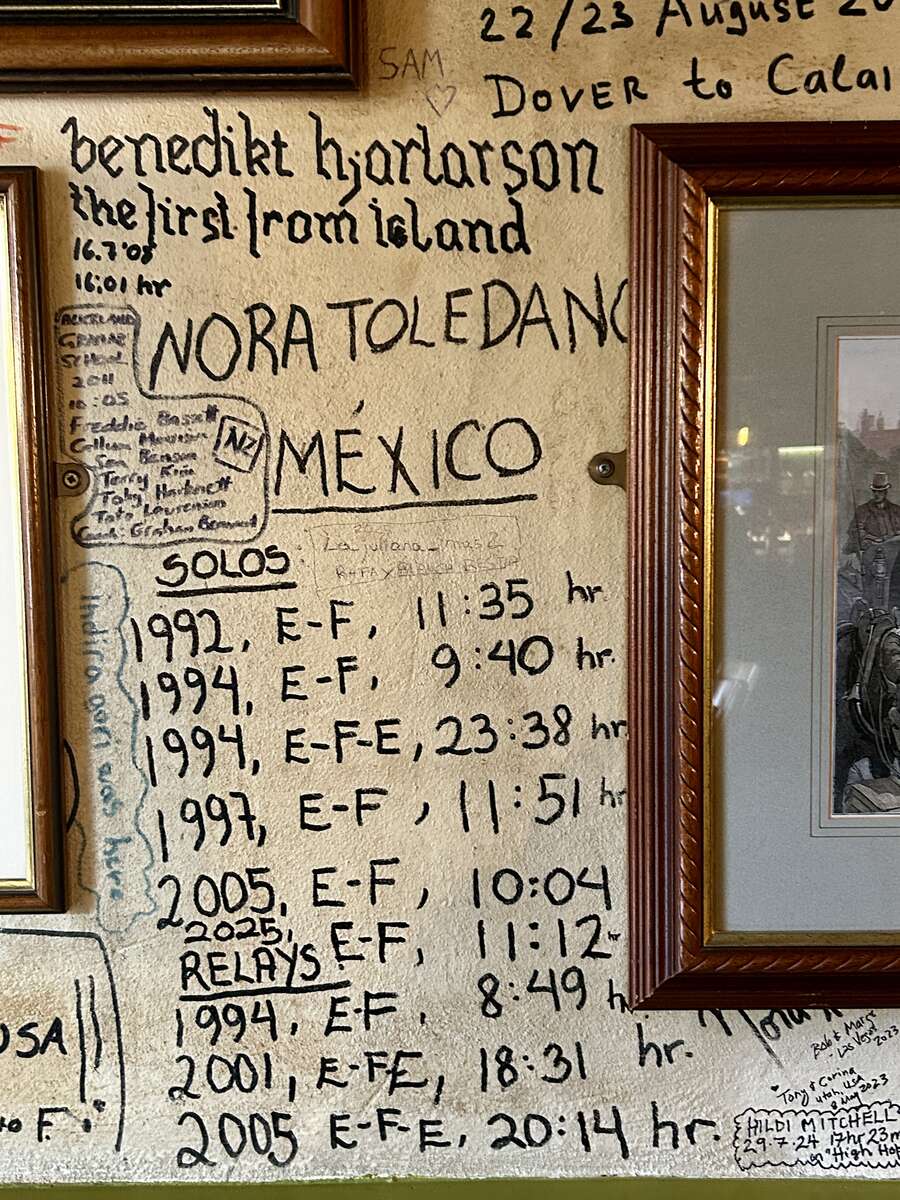 22/23 August 20
SAM
DOVER to Calai
benedikt hjartarson
the first from island
16.7 '08
16:01 hr
NORA TOLEDANO
MÉXICO
AUCKLAND
GRAMMAR
SCHOOL
2011
10:05
Freddie Bassett
Callum
Sam Benson
Terry Kim
Toby Harknett
Tate Laurenson
Coach: Graham
NZ
La juliana
SOLOS
1992, E-F, 11:35 hr.
1994, E-F, 9:40 hr.
1994, E-F-E, 23:38 hr
1997, E-F, 11:51 hr
2005, E-F, 10:04
2025, E-F, 11:12 hr
RELAYS
1994, E-F, 8:49 h
2001, E-F-E, 18:31 hr.
2005 E-F-E, 20:14 hr.
was here
USA
to F.
Nora
Bob & Marge
Las Vegas 2023
Tony & Corina
Utah, USA
8 May 2023
HILDI MITCHELL
29.7.24 17hr 23m
on "High Ho